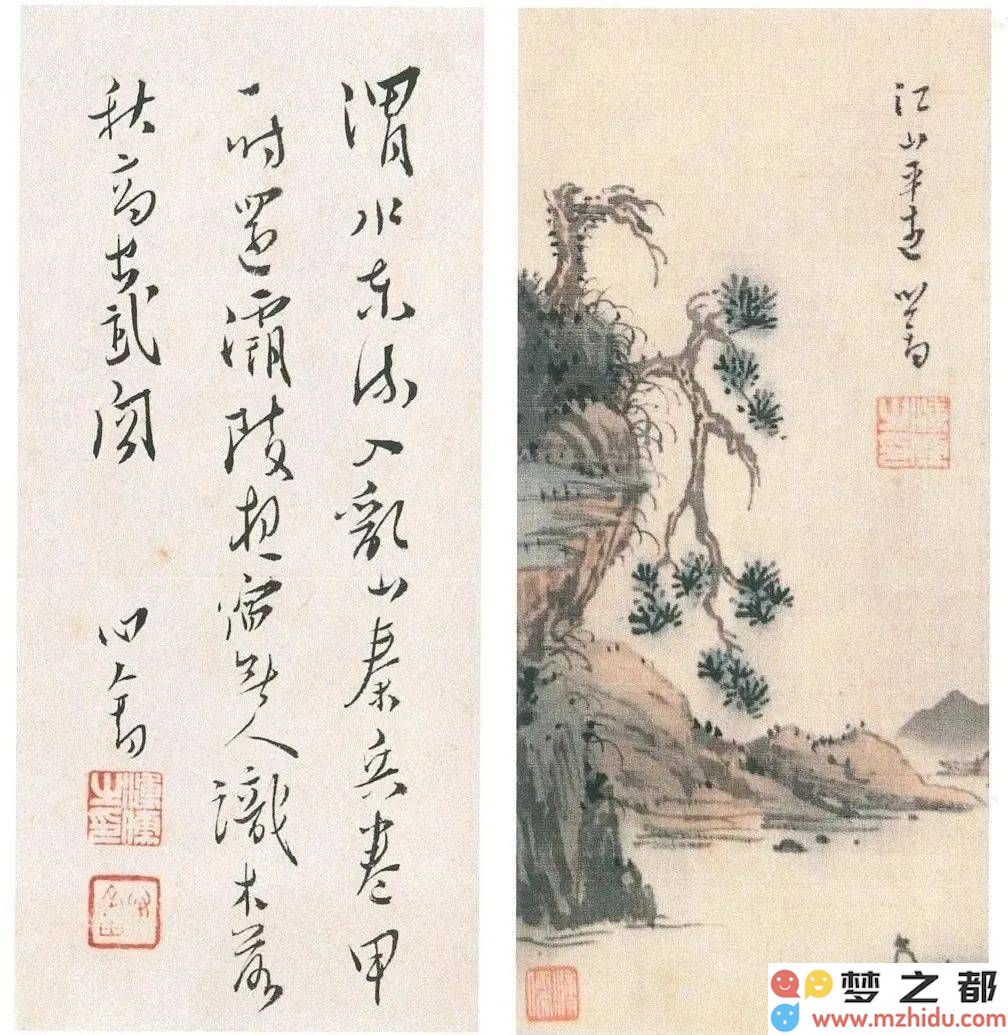 渭水东流入乱山秦兵卷甲
一时还灞陵夜宿无人识木落
秋高出武关
心畬
溥儒之印
江山平远 心畬
梦之都
www.mzhidu.com